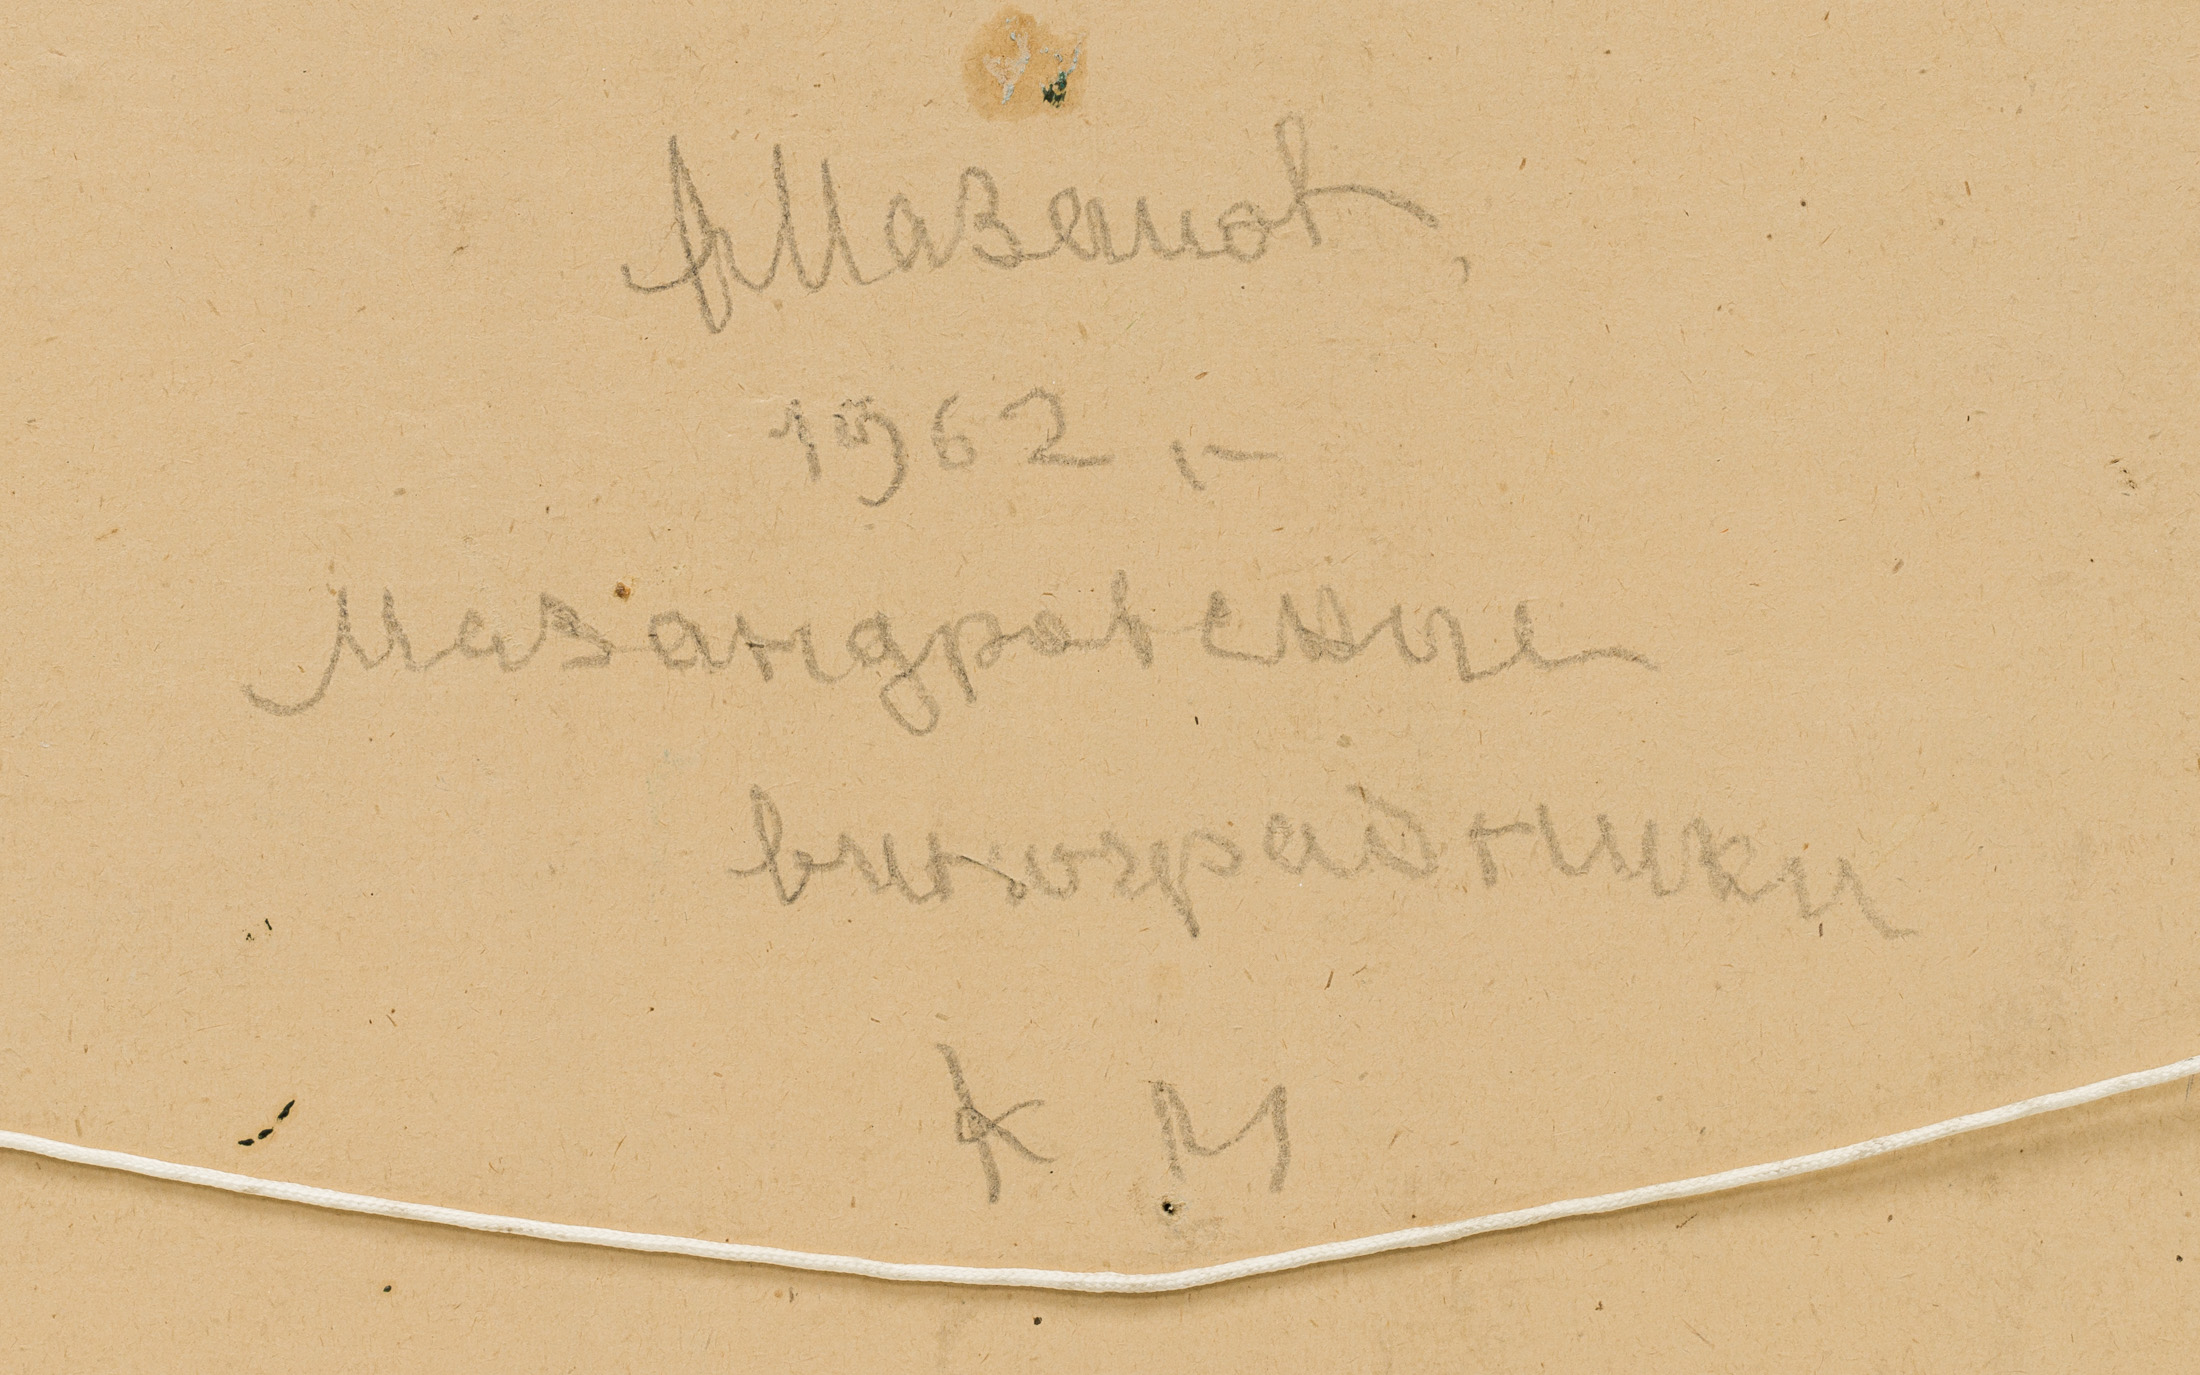 А Мазанов,
1962,-
Мазандровские
виноградники
К М